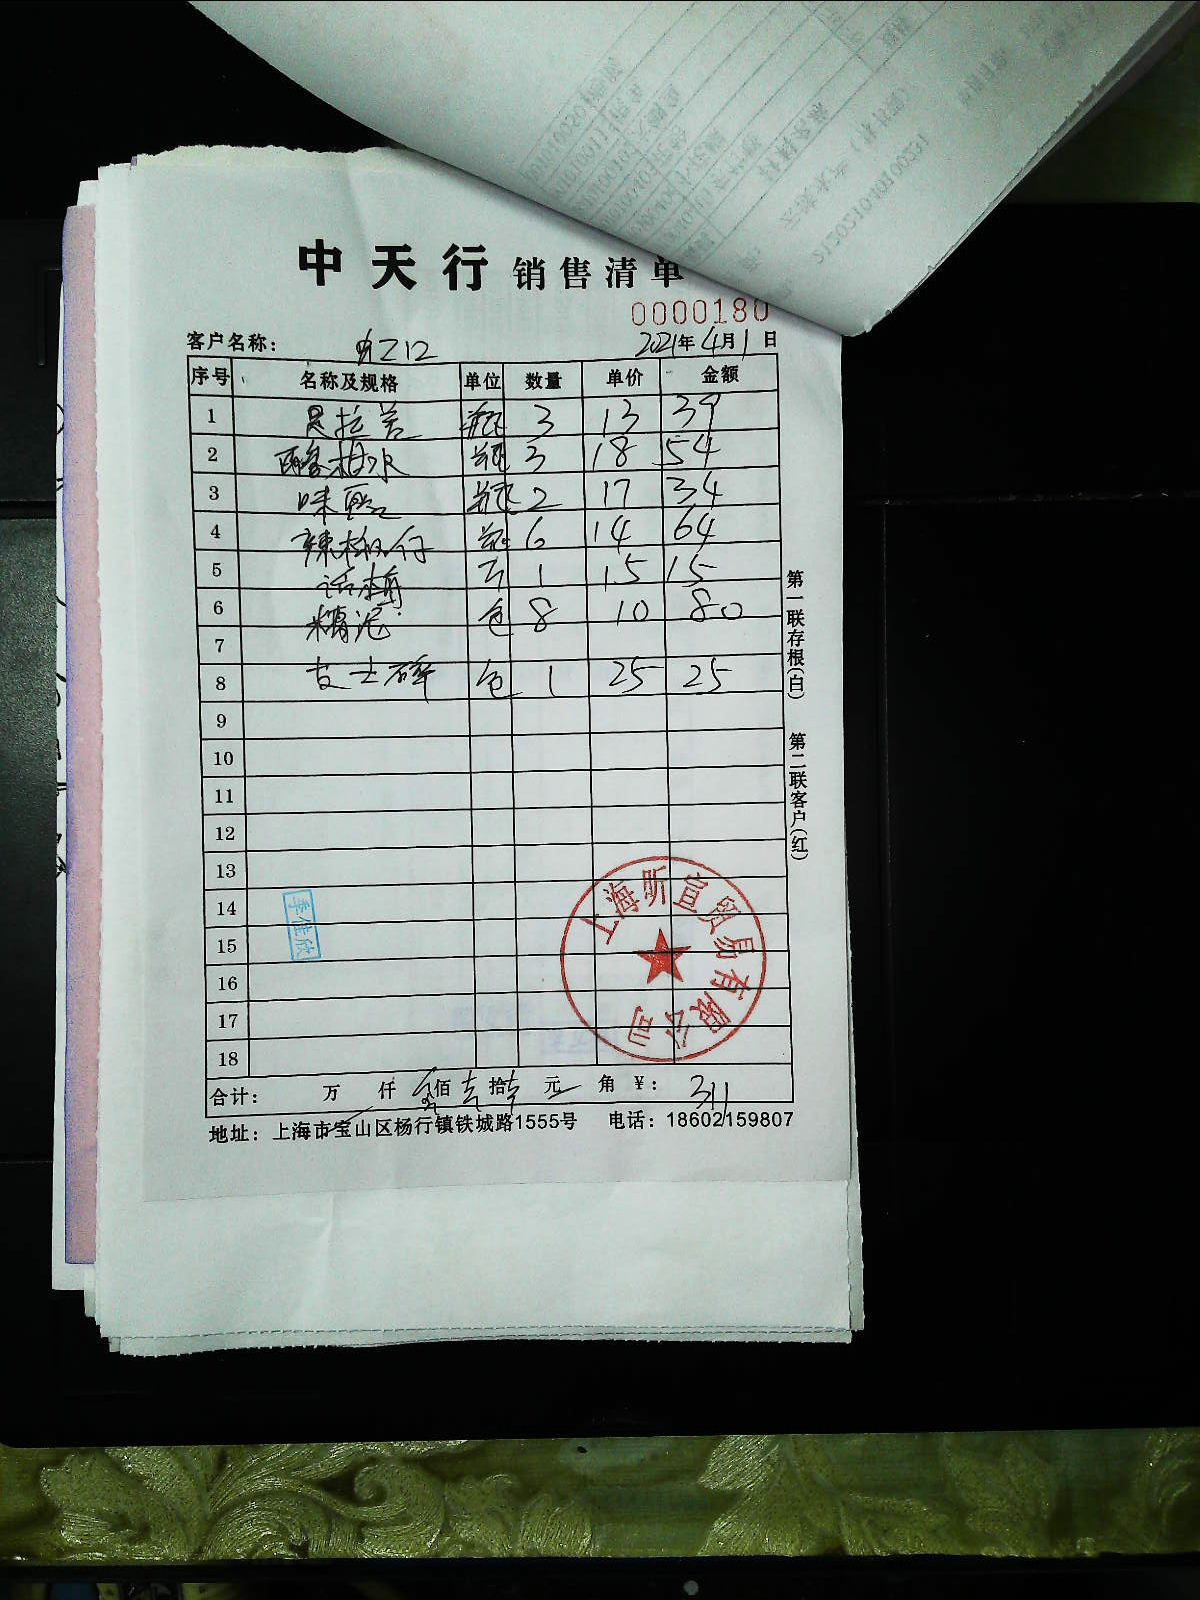 中天行 销售清单
0000180
客户名称： 2021年4月1日
序号 名称及规格 单位 数量 单价 金额
1 瓶 3 13 39
2 酸梅水 瓶 3 18 54
3 味 瓶 2 17 34
4 辣椒仔 瓶 6 14 64
5 话梅 1 15 15
6 包 8 10 80
7
8 芝士碎 包 1 25 25
9
10
11
12
13
14
15
16
17
18
李佳欣
上海昕宜贸易有限公司
合计： 万 仟 叁佰 壹拾 壹元 角 ￥： 311
地址：上海市宝山区杨行镇铁城路1555号 电话：18602159807
第一联存根(白)
第二联客户(红)